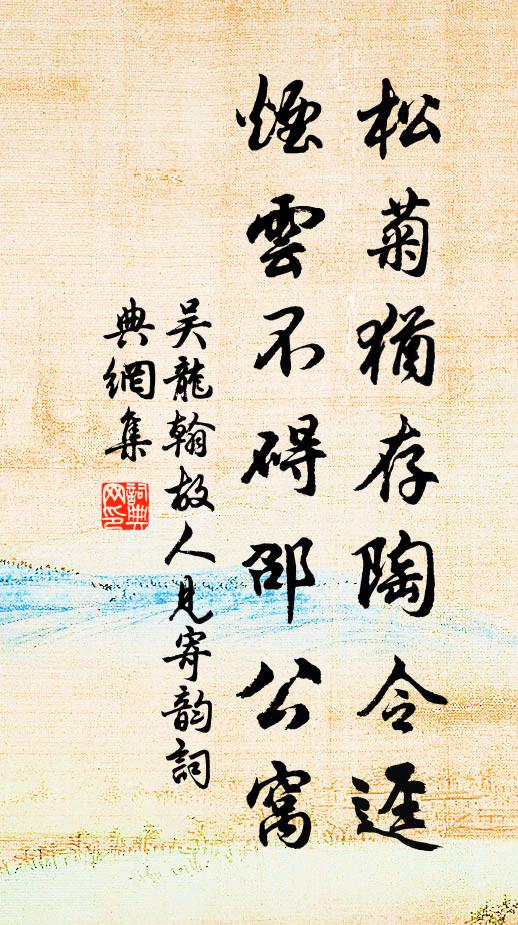 松菊猶存陶令逕
煙雲不碍邵公窩
吴龍翰故人見寄韵詞
典網集
詞典网印